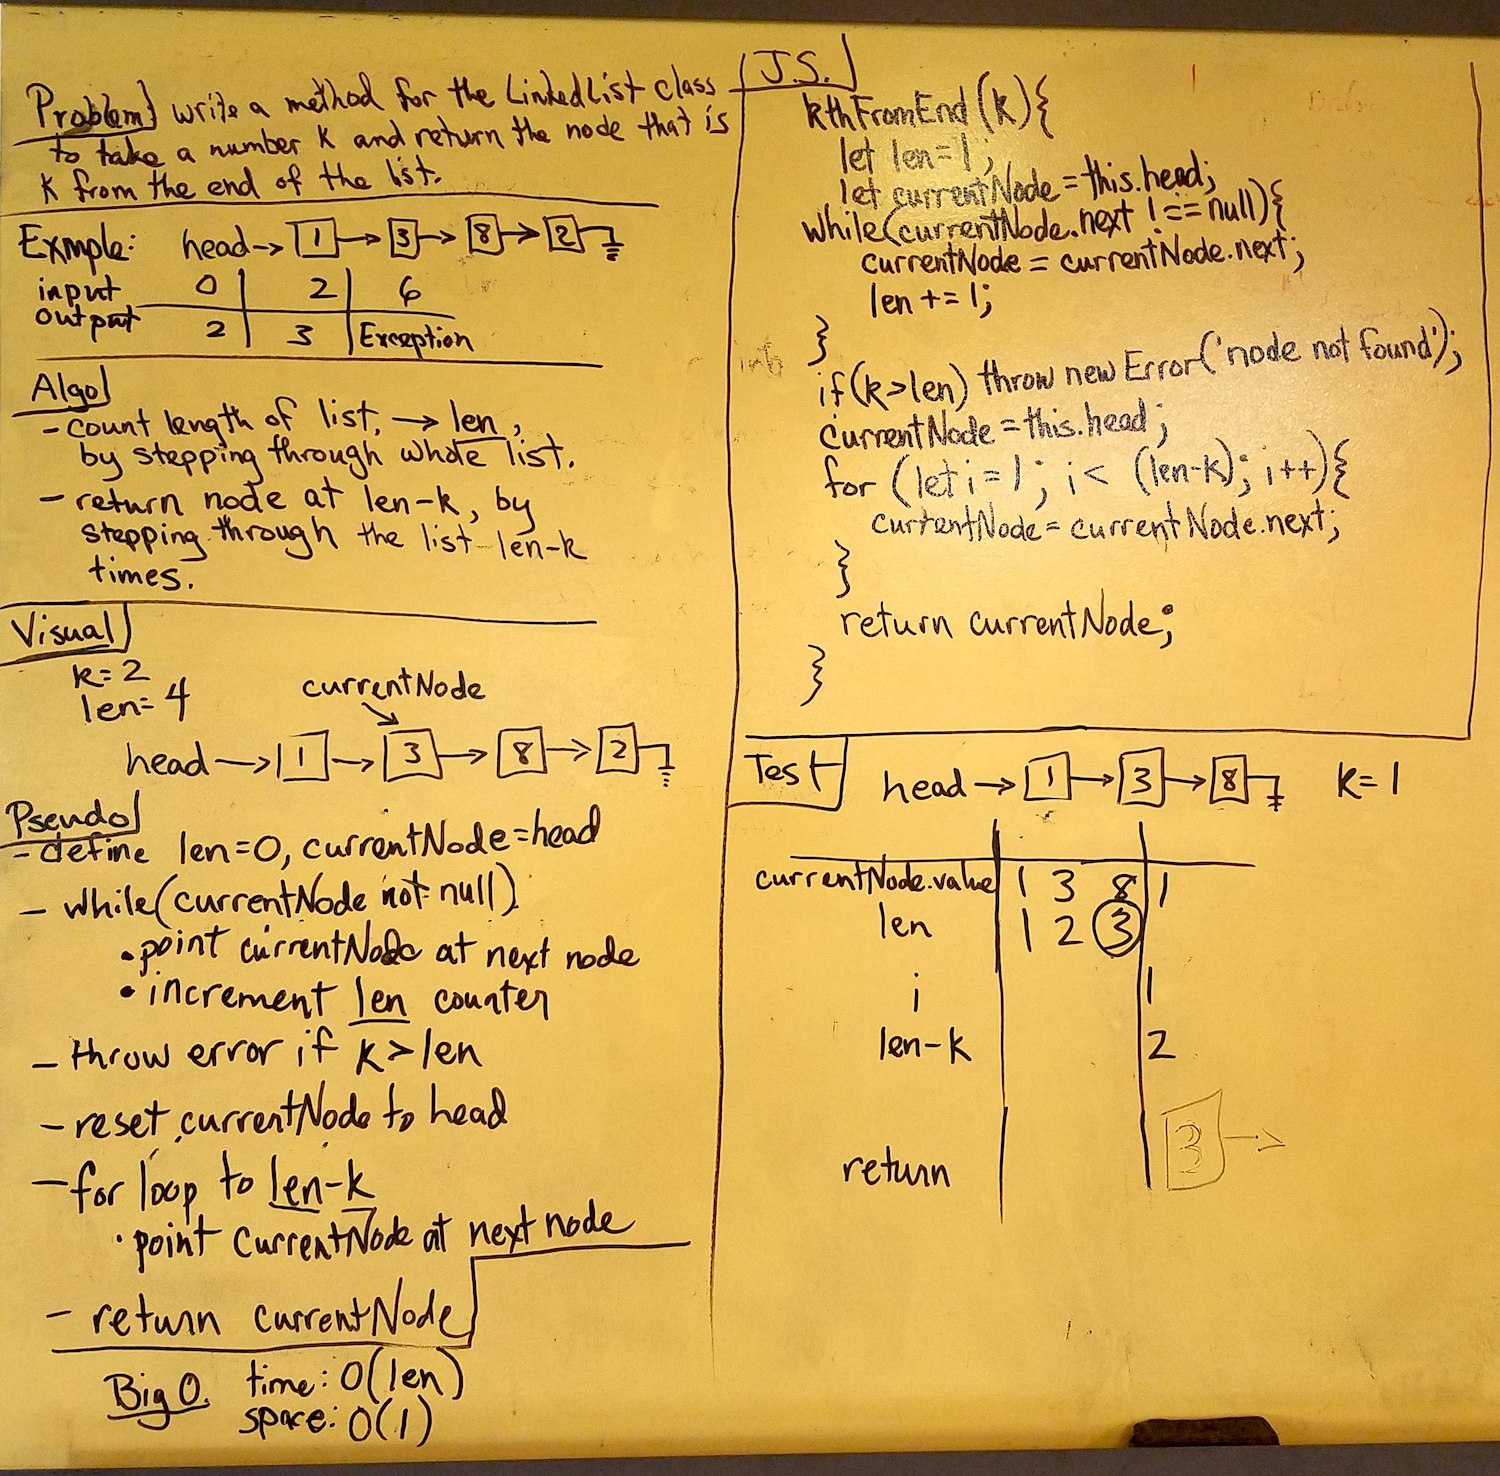 Problem} write a method for the Linked List class
to take a number K and return the node that is
K from the end of the list.
Exmple: head→ 1 → 3 → 8 → 2
input 0 2 6
output 2 3 Exception
Algo
- count length of list, → len,
by stepping through whole list.
- return node at len-k, by
stepping through the list len-k
times.
Visual
k=2
len=4
currentNode
head → 1 → 3 → 8 → 2
Pseudo
- define len=0, currentNode=head
- while(currentNode not null)
• point currentNode at next node
• increment len counter
- throw error if k>len
- reset currentNode to head
- for loop to len-k
• point currentNode at next node
- return currentNode
Big O. time: O(len)
space: O(1)
J.S.
kthFromEnd(k){
let len=1;
let currentNode=this.head;
while(currentNode.next !== null){
currentNode = currentNode.next;
len += 1;
}
if(k>len) throw new Error('node not found');
currentNode=this.head;
for (let i=1; i< (len-k); i++){
currentNode = currentNode.next;
}
return currentNode;
}
Test head → 1 → 3 → 8 k=1
currentNode.value 1 3 8 1
len 1 2 3
i 1
len-k 2
return 3 →